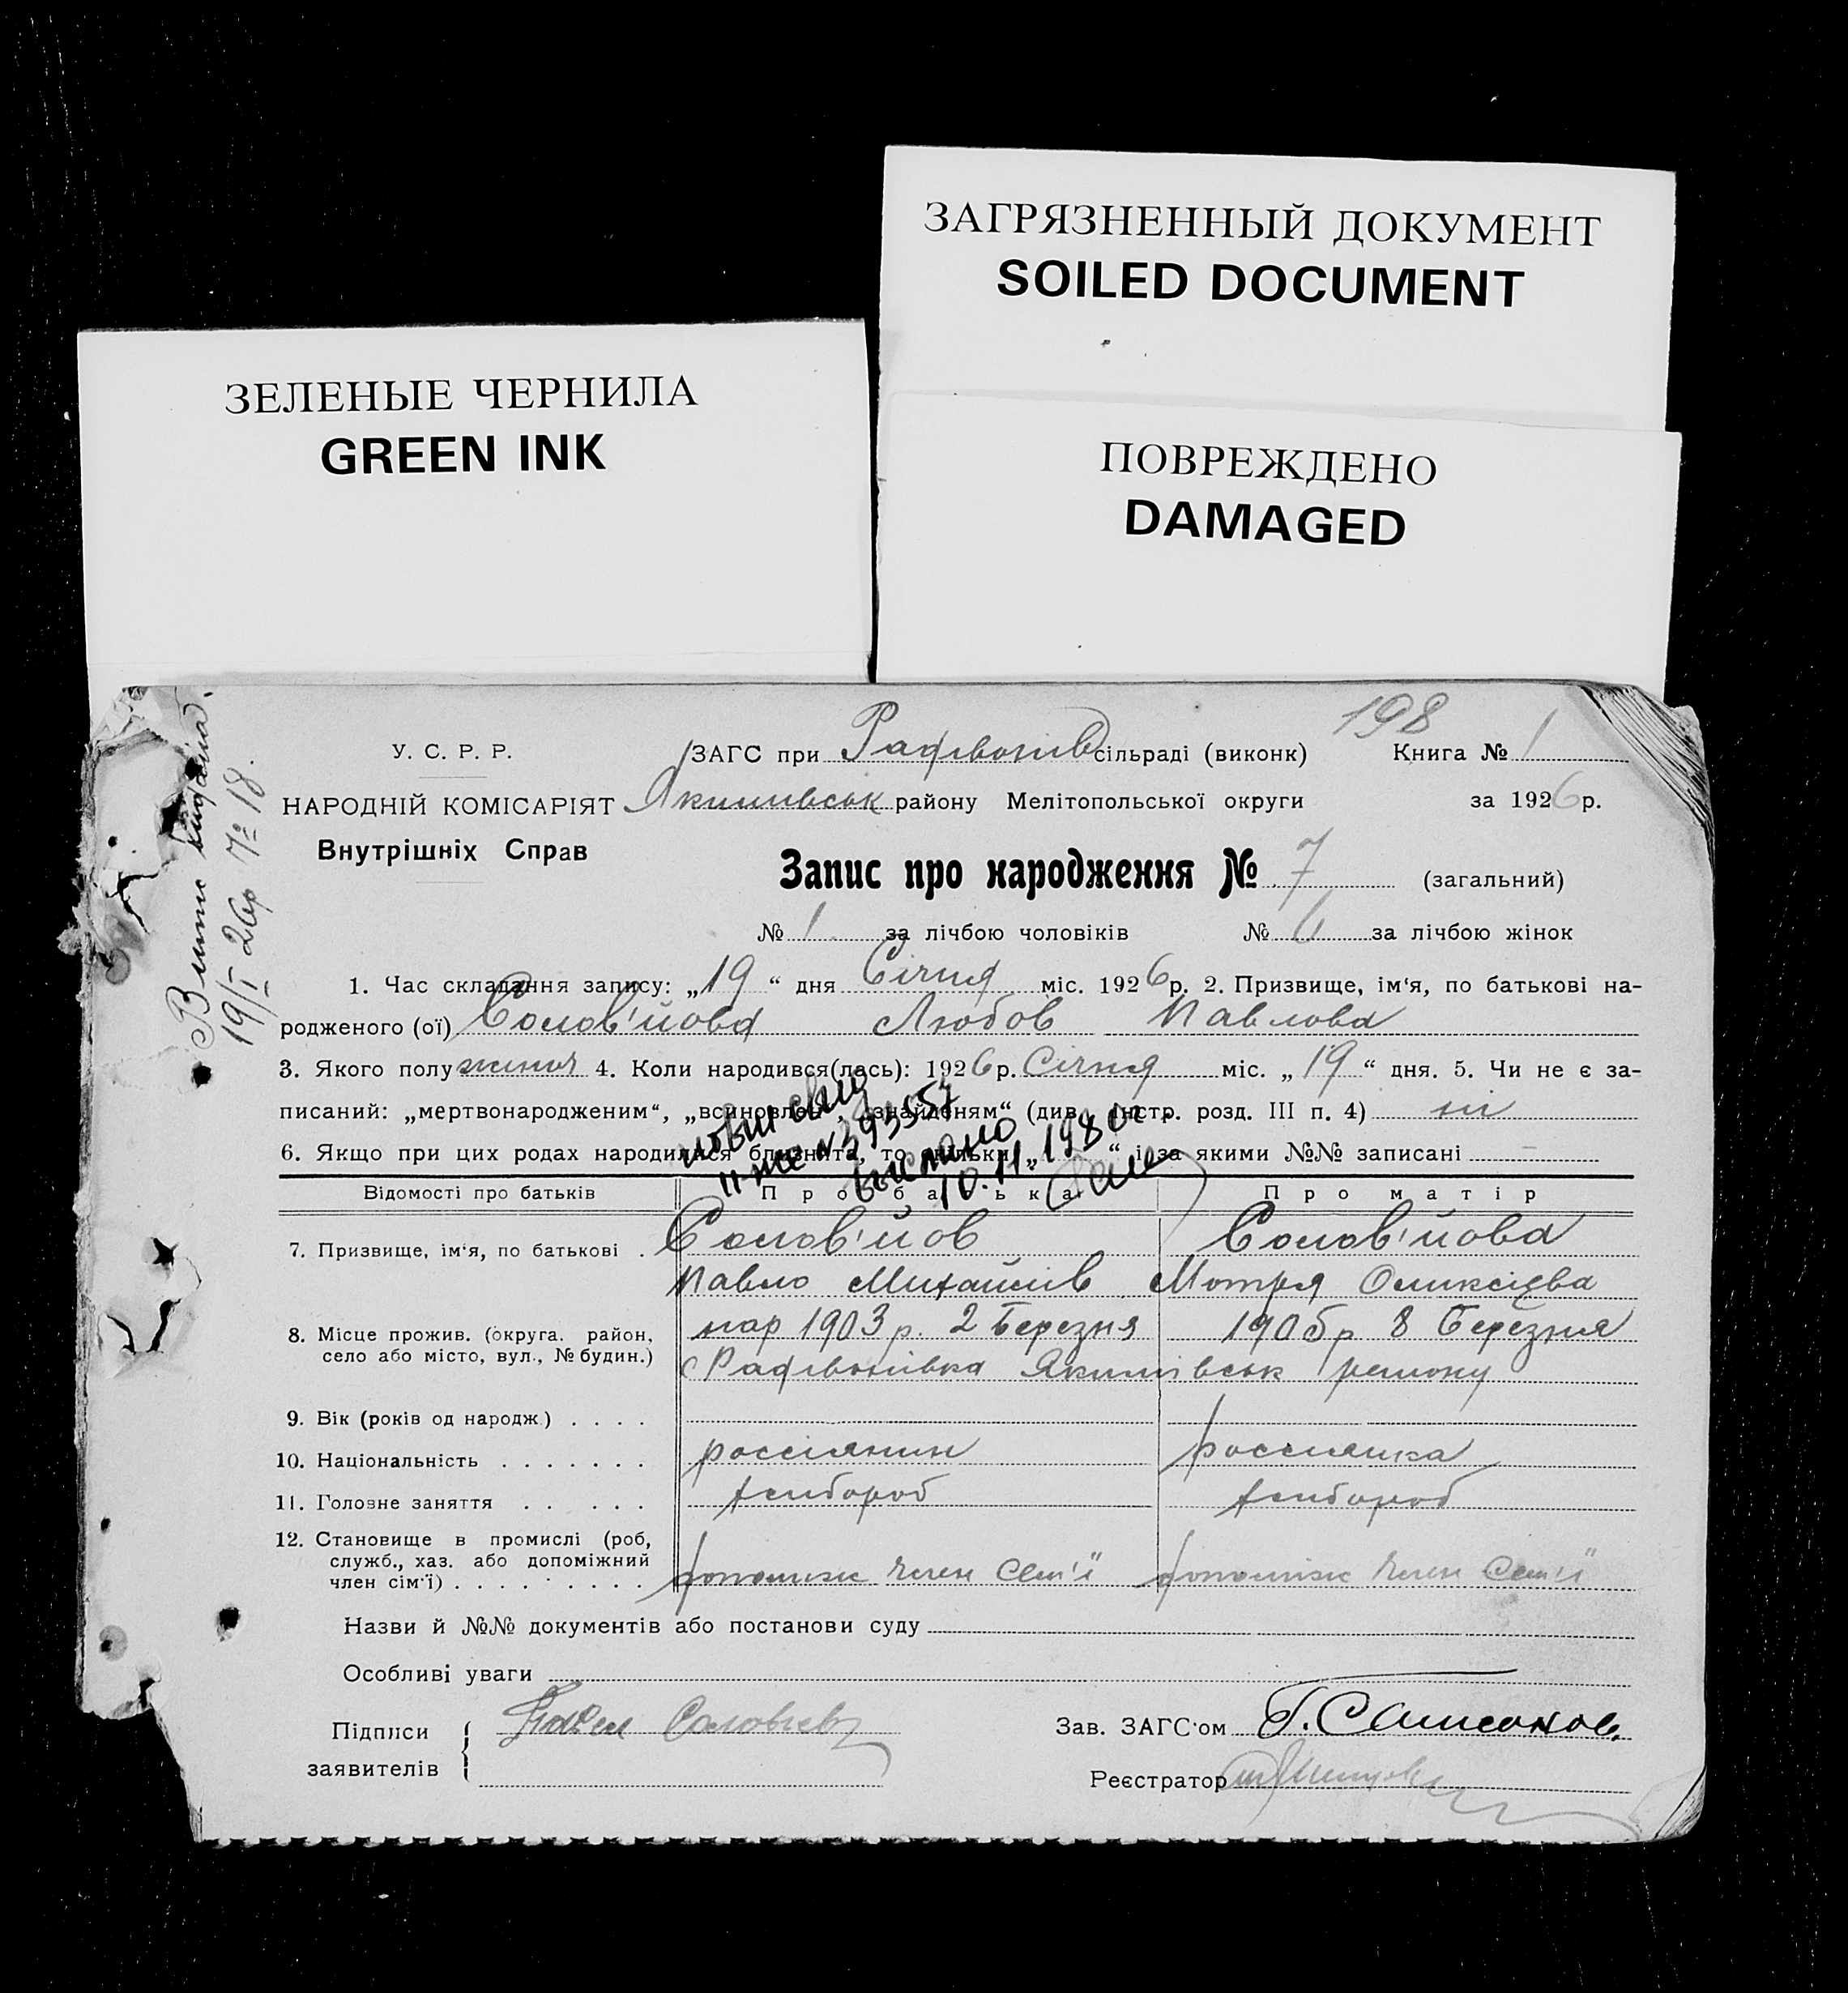 ЗАГРЯЗНЕННЫЙ ДОКУМЕНТ
SOILED DOCUMENT
ЗЕЛЕНЫЕ ЧЕРНИЛА
GREEN INK
ПОВРЕЖДЕНО
DAMAGED
198
У. С. Р. Р.
ЗАГС при Радівонів сільраді (виконк) Книга № 1
НАРОДНІЙ КОМІСАРІЯТ
Якимівськ району Мелітопольської округи за 1926 р.
Внутрішніх Справ
Запис про народження № 7 (загальний)
№ 1 за лічбою чоловіків № 6 за лічбою жінок
19/I 26р № 18.
1. Час складання запису: „19“ дня Січня міс. 1926 р. 2. Призвище, ім‘я, по батькові на-
родженого (ої) Солов'йова Любов Павлова
3. Якого полу жіноч 4. Коли народився(лась): 1926 р. Січня міс. „19“ дня. 5. Чи не є за-
писаний: „мертвонародженим“, „всиновлен“, „знайденям“ (див. інстр. розд. III п. 4) ні
6. Якщо при цих родах народилися близнята, то скільки „ “ і за якими №№ записані –
II-ЖС № 393557
10.11.1980 г.
Відомості про батьків Про батька Про матір
7. Призвище, ім‘я, по батькові . Солов'йов Солов'йова
Павло Михайлів Мотря Оликсієва
нар 1903 р. 2 Березня 1905 р 8 Березня
8. Місце прожив. (округа. район,
село або місто, вул., № будин.)
с Радівонівка Якимівськ району
9. Вік (років од народж) . . . .
10. Національність . . . . . . . россіянин россіянка
11. Головне заняття . . . . . . хлібороб хлібороб
12. Становище в промислі (роб,
служб., хаз. або допоміжний
член сім‘ї) . . . . . . . . . допоміж член Сем'ї допоміж член Сем'ї
Назви й №№ документів або постанови суду
Особливі уваги
Підписи
заявителів
Павел Соловьев
Зав. ЗАГС‘ом Г. Самсонов
Реєстратор